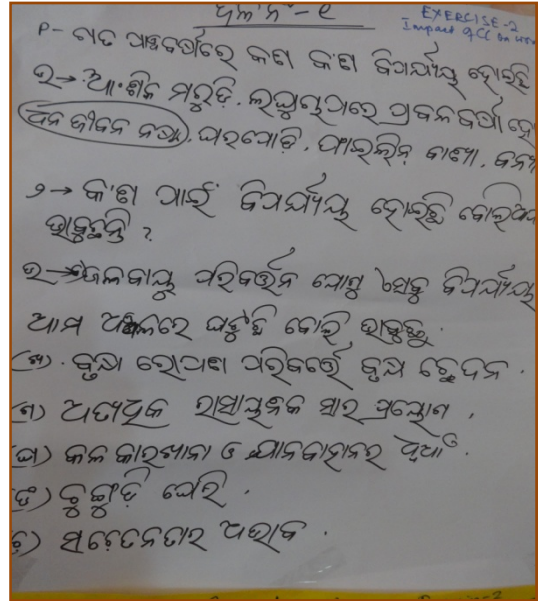 ଦଳ ନଂ - ୧
EXERCISE-2
Impact of CC on
P- ଗତ ପାଞ୍ଚବର୍ଷରେ କଣ କଣ ବିପର୍ଯ୍ୟୟ ହୋଇଛି
ଉ→ ଆଂଶିକ ମରୁଡ଼ି. ଲଘୁଚାପରେ ପ୍ରବଳ ବର୍ଷା
ଧନ ଜୀବନ ନଷ୍ଟ. ଘରପୋଡ଼ି. ଫାଇଲିନ୍ ବାତ୍ୟା. ବନ୍ୟା
୨→ କ'ଣ ପାଇଁ ବିପର୍ଯ୍ୟୟ ହୋଇଛି ବୋଲି
ଭାବୁଛନ୍ତି ?
ଉ→ ଜଳବାୟୁ ପରିବର୍ତ୍ତନ ଯୋଗୁ ଏସବୁ ବିପର୍ଯ୍ୟୟ
ଆମ ଅଞ୍ଚଳରେ ଘଟୁଛି ବୋଲି ଭାବୁଛୁ.
(ଖ). ବୃକ୍ଷ ରୋପଣ ପରିବର୍ତ୍ତେ ବୃକ୍ଷ ଛେଦନ.
(ଗ) ଅତ୍ୟଧିକ ରାସାୟନିକ ସାର ପ୍ରୟୋଗ.
(ଘ) କଳ କାରଖାନା ଓ ଯାନବାହାନର ଧୂଆଁ.
(ଙ) ଚୁଙ୍ଗୁଡ଼ି ଘେରି.
ଚ) ସଚେତନତାର ଅଭାବ.